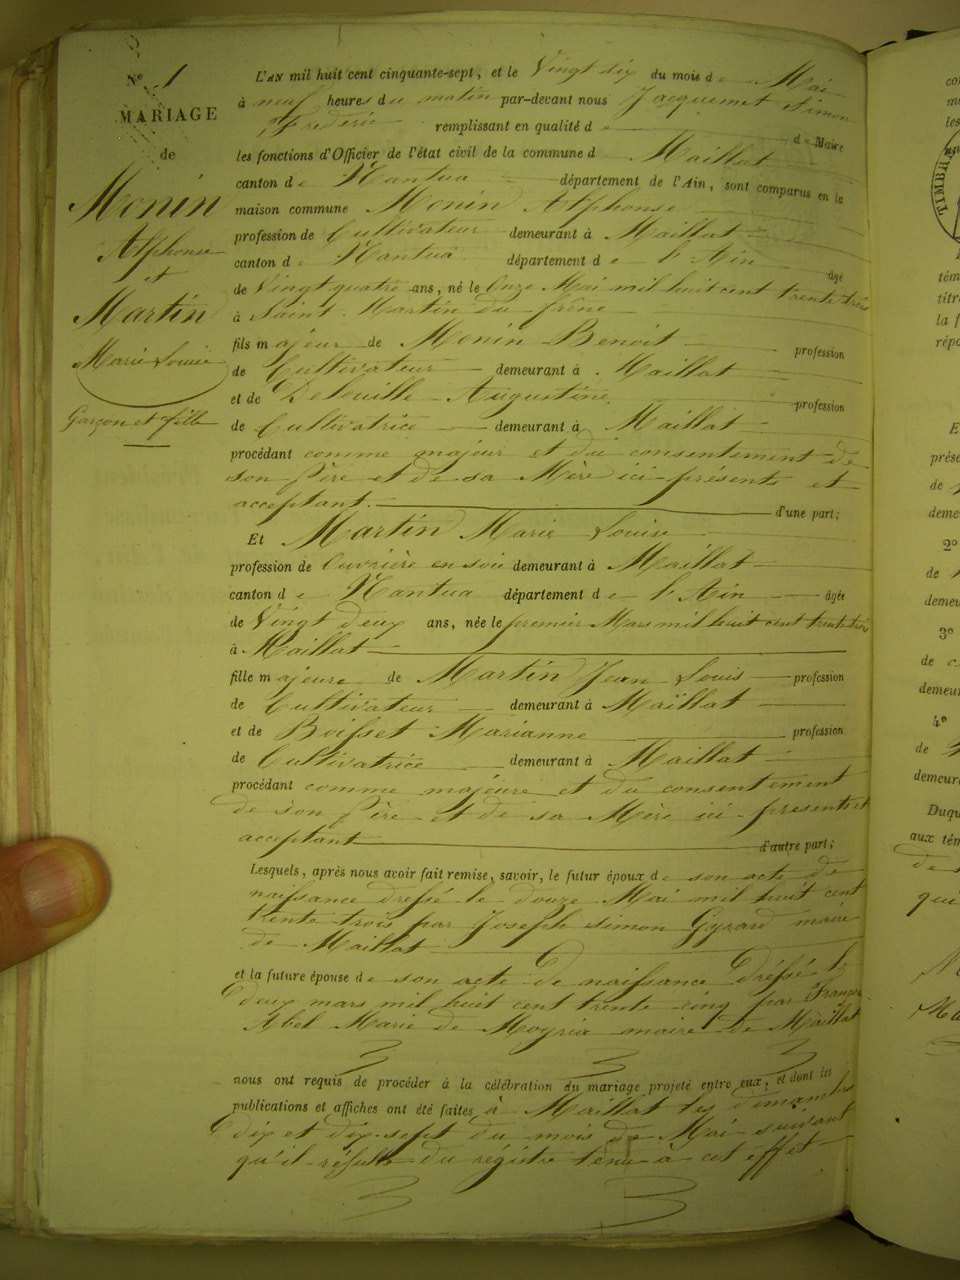 N° 1
MARIAGE
de
Monin
Alphonse
et
Martin
Marie Louise
Garçon et fille
L'AN mil huit cent cinquante-sept, et le Vingt six du mois de Mai
à neuf heures du matin par-devant nous Jacquemet Simon
Frédéric remplissant en qualité de de Maire
les fonctions d'Officier de l'état civil de la commune d Maillat
canton de Nantua département de l'Ain, sont comparus en la
maison commune Monin Alphonse
profession de Cultivateur demeurant à Maillat
canton de Nantua département de l'Ain âgé
de Vingt quatre ans, né le Onze Mai mil huit cent trente trois
à Saint Martin du frêne
fils majeur de Monin Benoit profession
de Cultivateur demeurant à Maillat
et de Augustine profession
de Cultivatrice demeurant à Maillat
procédant comme majeur et du consentement de
son Père et de sa Mère ici présents et
acceptant. d'une part;
Et Martin Marie Louise
profession de Ouvrière en soie demeurant à Maillat
canton de Nantua département de l'Ain âgée
de Vingt deux ans, née le premier Mars mil huit cent trente
à Maillat
fille majeure de Martin Jean Louis profession
de Cultivateur demeurant à Maillat
et de Boisset Marianne profession
de Cultivatrice demeurant à Maillat
procédant comme majeure et du consentement
de son Père et de sa Mère ici présents et
acceptant d'autre part;
Lesquels, après nous avoir fait remise, savoir, le futur époux de son acte de
naissance dressé le douze Mai mil huit cent
trente trois par Joseph Simon Gyrard maire
de Maillat
et la future épouse de son acte de naissance dressé le
deux mars mil huit cent trente cinq par François
Abel Marie de Moyria maire de Maillat
nous ont requis de procéder à la célébration du mariage projeté entre eux, et dont les
publications et affiches ont été faites à Maillat les dimanches
dix et dix-sept du mois de Mai suivant
qu'il résulte du régistre tenu à cet effet
TIMBR